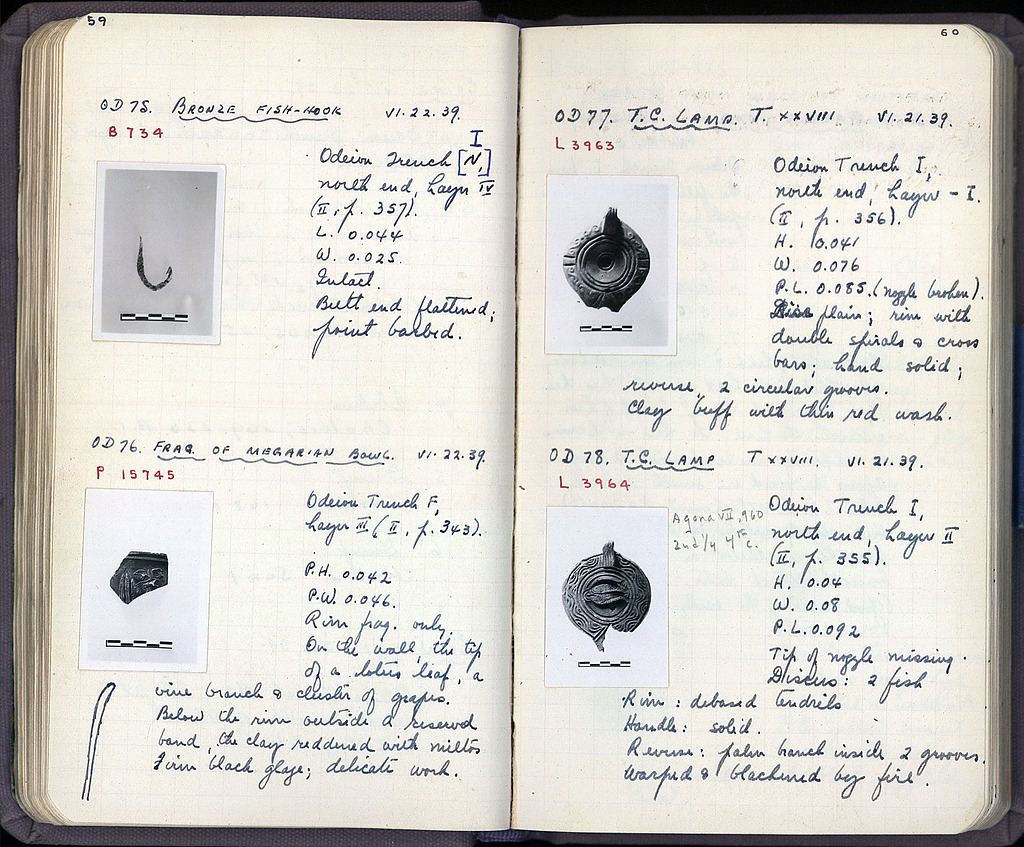 59
OD 75. BRONZE FISH-HOOK VI.22.39.
B 734
I
Odeion Trench [N,]
north end, Layer IV
(II, p. 357).
L. 0.044
W. 0.025.
Intact.
Butt end flattened;
point barbed.
OD 76. FRAG. OF MEGARIAN BOWL. VI.22.39.
P 15745
Odeion Trench F,
Layer III (II, p. 343).
P.H. 0.042
P.W. 0.046.
Rim frag. only.
On the wall, the tip
of a lotus leaf, a
vine branch & cluster of grapes.
Below the rim outside a reserved
band, the clay reddened with miltos
Firm black glaze; delicate work.
60
OD 77. T.C. LAMP. T. XXVIII. VI.21.39.
L 3963
Odeion Trench I,
north end, Layer - I.
(II, p. 356).
H. 0.041
W. 0.076
P.L. 0.085. (nozzle broken).
Disc plain; rim with
double spirals & cross
bars; hand solid;
reverse, 2 circular grooves.
Clay buff with thin red wash.
OD 78. T.C. LAMP T XXVIII. VI.21.39.
L 3964
Agora VII, 960
2nd 1/4 4th c.
Odeion Trench I,
north end, Layer II
(II, p. 355).
H. 0.04
W. 0.08
P.L. 0.092
Tip of nozzle missing.
Discus: 2 fish
Rim: debased tendrils
Handle: solid.
Reverse: palm branch inside 2 grooves.
Warped & blackened by fire.